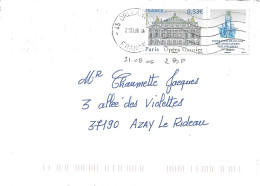 FRANCE 0,53€
Paris Opéra Garnier
21-08-06
Mr Chaumette Jacques
3 allée des Violettes
37190 AZAY Le Rideau